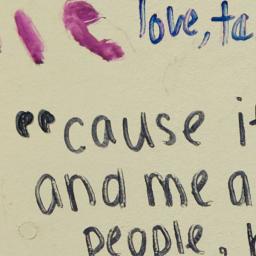 love, ta
"cause i
and me a
people,